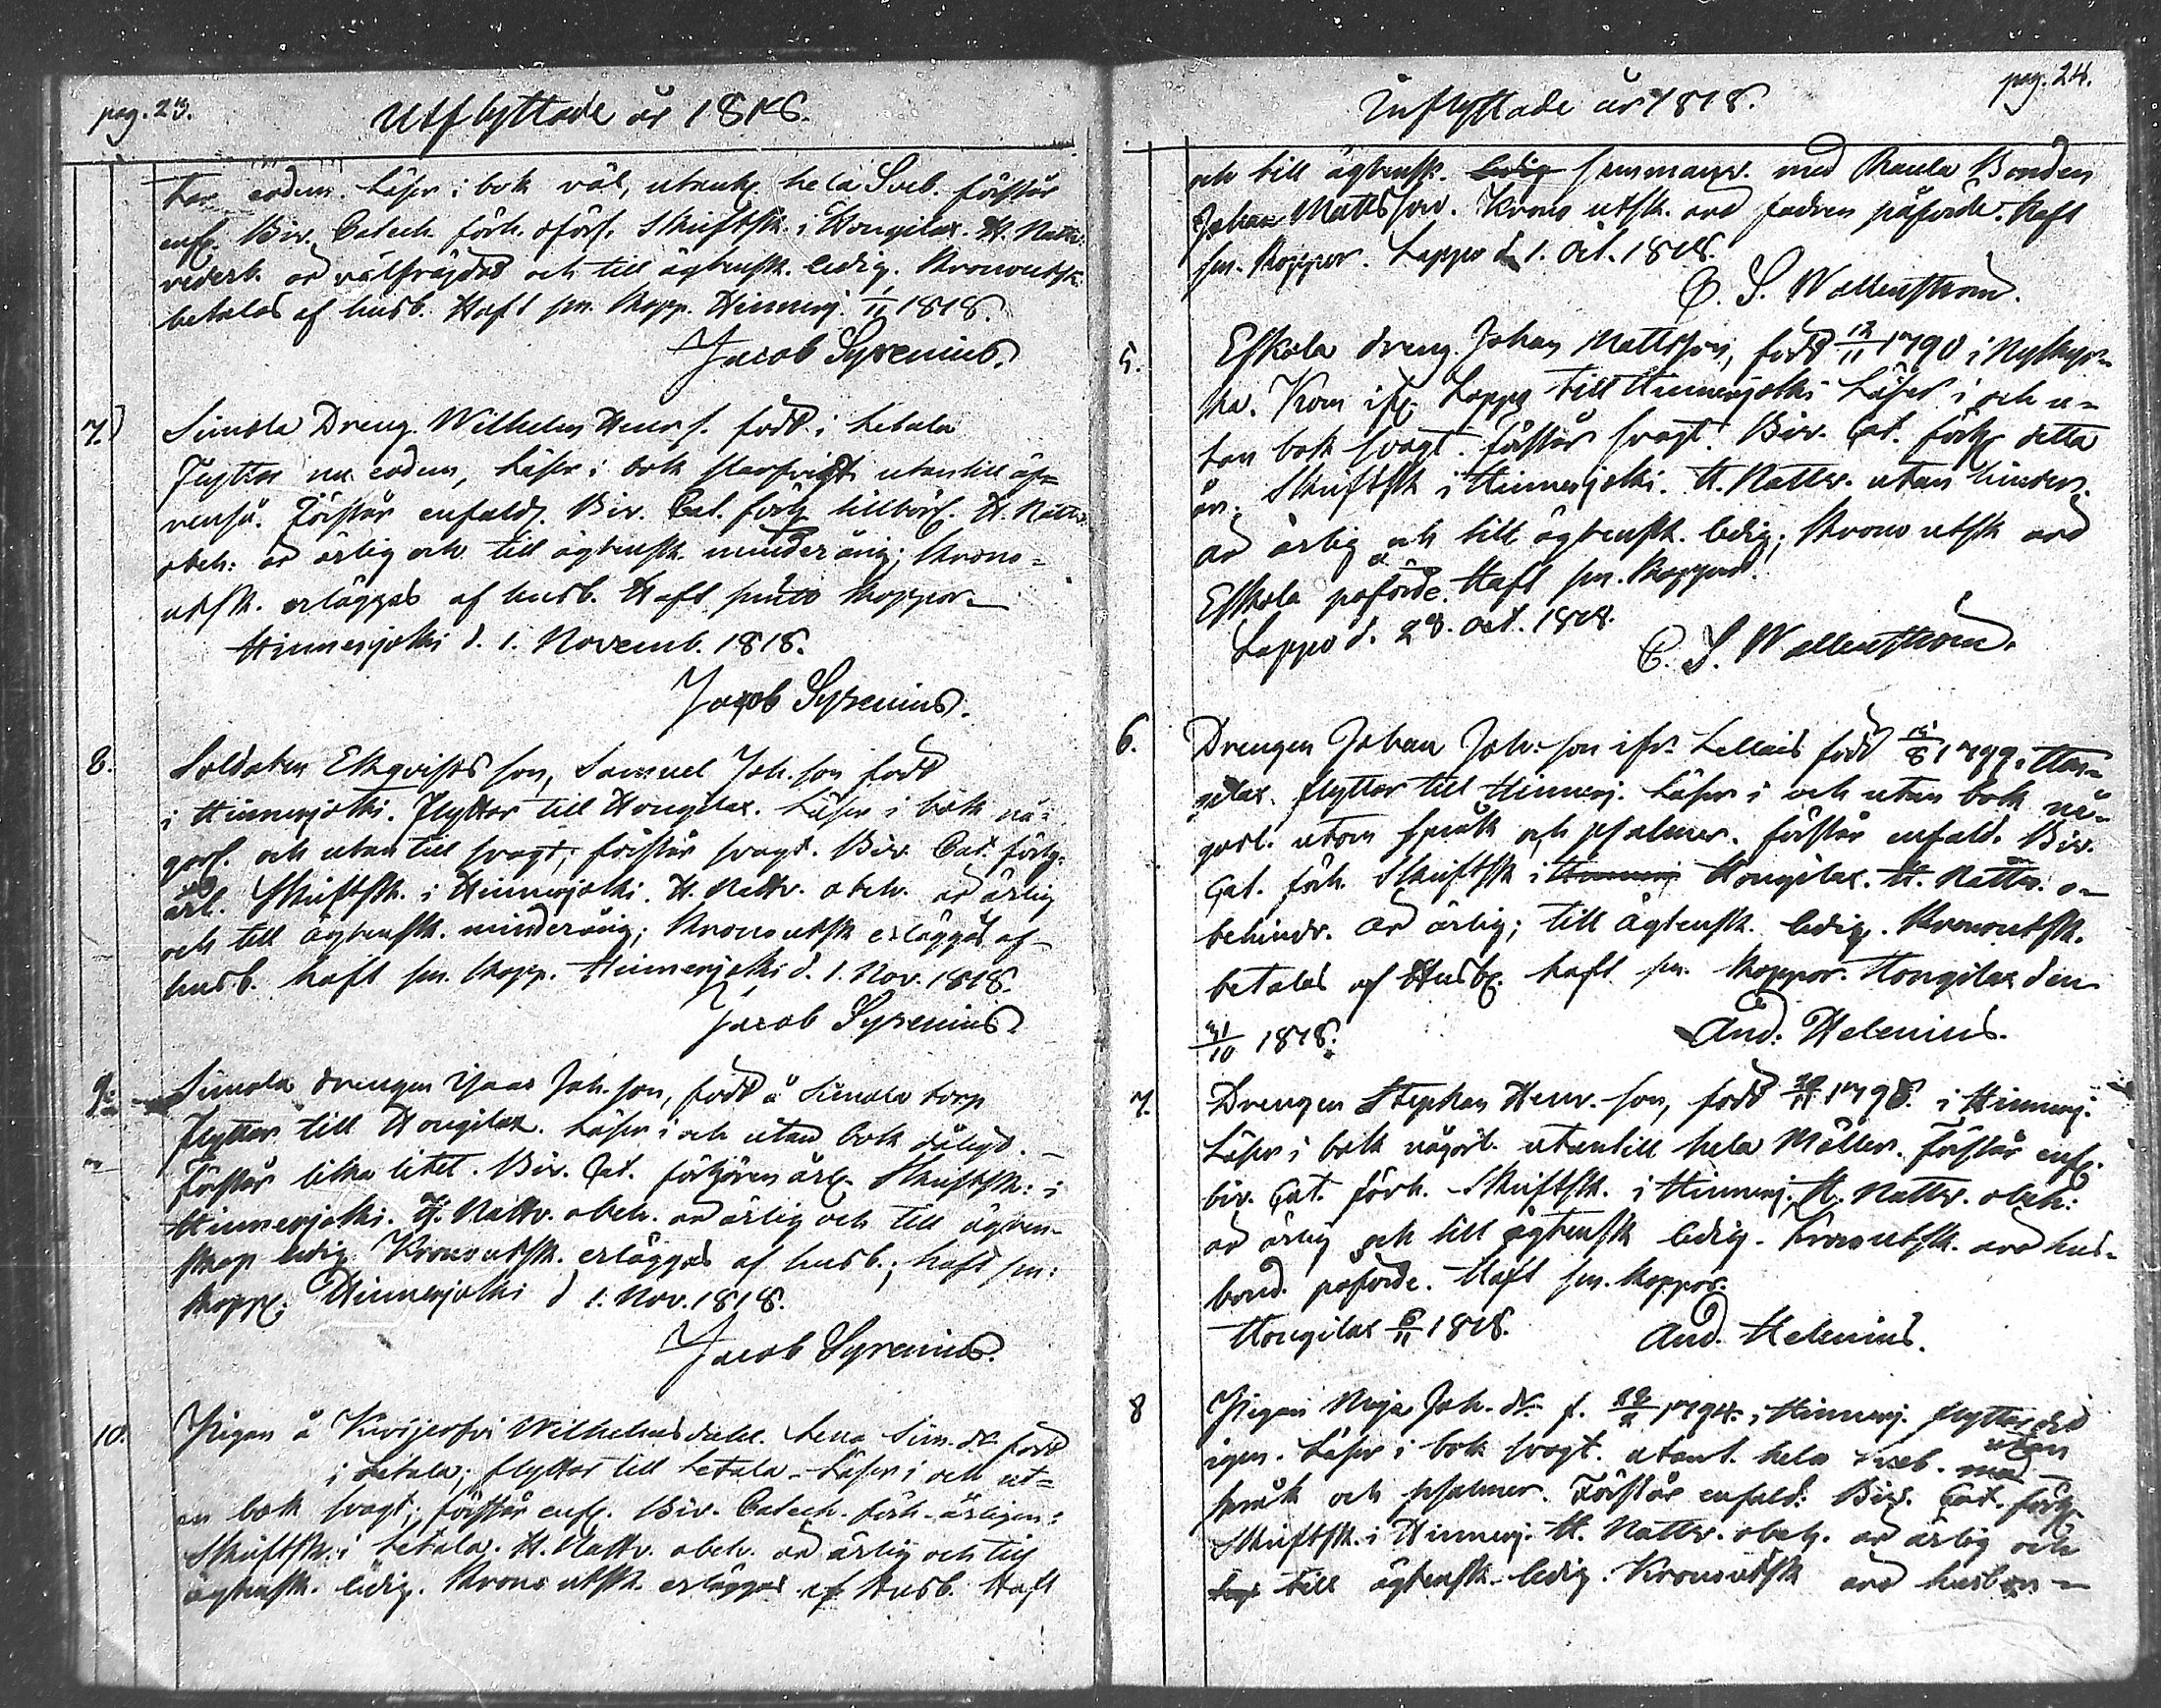 pag. 23.
Utflyttade år 1818.
har eodem. Läser i bok väl, utanl. hela Sveb. förstår
enf. Biv. Catech. förh. Skriftsk. i Hongilax. H. Nattv.
är välfrägdad och till ägtensk. ledig. Kronoutsk.
betalas af husb. Haft sm. kopp. Hinnerj. 1/11 1818.
Jacob Syrenius.
7.
Simola Dreng Wilhelm Henr. s. född i Letala
Flyttar nu eodem, Läser i bok utantill äf-
venså. Förstår enfald. Biv. Cat. förh. H. Nattv.
obeh. är ärlig och till ägtensk. minderårig; Krono-
utsk. erlägges af husb. Haft koppor.
Hinnerjoki d. 1. Novemb. 1818.
Jacob Syrenius.
8.
Soldaten Ekqvists son, Samuel Joh. son född
i Hinnerjoki. Flyttar till Hongilax. Läser i bok nå-
gorl. och utantill svagt, förstår svagt. Biv. Cat. förh.
årl. Skriftsk. i Hinnerjoki. H. Nattv. obeh. är ärlig
och till ägtensk. minderårig; Kronoutsk erlägges af
husb. haft sm. kopp. Hinnerjoki d. 1. Nov. 1818.
Jacob Syrenius
9.
Simola drengen Isaac Joh. son, född å Simola torp
flyttar till Hongilax. Läser i och utan bok dåligt.
Förstår lika litet. Biv. Cat. förhören årl. Skriftsk. i
Hinnerjoki. H. Nattv. obeh. är ärlig och till ägten-
skap ledig. Kronoutsk. erlägges af husb.; haft sm.
kopp. Hinnerjoki d 1. Nov. 1818.
Jacob Syrenius.
10.
Pigan å Kivijerfvi Wilhelmsdahl. Lena Sim. dr. född
i Letala; flyttar till Letala. Läser i och ut-
an bok svagt; förstår enf. Biv. Catech. förh. årligen:
Skriftsk. i Letala. H. Nattv. obeh. är ärlig och till
ägtensk. ledig. Krono utsk. erlägges af Husb. Haft
pag. 24.
Inflyttade år 1818.
och till ägtensk. ledig med Raula Bonden
Johan Mattsson. Krono utsk. äro fadren påförde. Haft
sm. koppor. Lappo d. 1. Oct. 1818.
C. S. Wallenstrøm.
5.
Eskola dreng Johan Mattsson, född 12/11 1790 i Nykyr-
ka. Kom ifr. Lappo till Hinnerjoki Läser i och u-
tan bok svagt. förstår svagt. Biv. Cat. förh. detta
år. Skriftsk i Hinnerjoki. H. Nattv. utan hinder.
är ärlig och till ägtensk. ledig; Krono utsk äro
Eskola påförde. Haft sm. koppor.
Lappo d. 28. Oct. 1818.
C. S. Wallenstrøm.
6.
Drengen Johan Joh. son ifr. Lellais född 1799 i Hon-
gilax. flyttar till Hinnerj. Läser i och utan bok nå-
gorl. utom språk och psalmer. förstår enfald. Biv.
Cat. förh. Skriftsk i Hinnerj Hongilax. H. Nattv. o-
behindr. är ärlig; till ägtensk. ledig. Kronoutsk.
betalas af Husb. haft sm. koppor. Hongilax den
31/10 1818.
And. Helenius.
7.
Drengen Stephan Henr. son, född 1798. i Hinnerj.
Läser i bok någorl. utantill hela Möller. Förstår enf.
biv. Cat. förh. Skriftsk. i Hinnerj. H. Nattv. obeh:
är ärlig och till ägtensk ledig. Kronoutsk. äro hus-
bond. påförde. Haft sm. koppor.
Hongilax 6/11 1818.
And. Helenius.
8
Pigan Maja Joh. dr f. 1794. i Hinnerj. flyttar dit
igen. Läser i bok svagt. utant. hela sveb. med utan
språk och psalmer. Förstår enfald: Biv. Cat. förh.
Skriftsk. i Hinnerj. H. Nattv. obeh. är ärlig och
till ägtensk. ledig. Kronoutsk äro husbon-